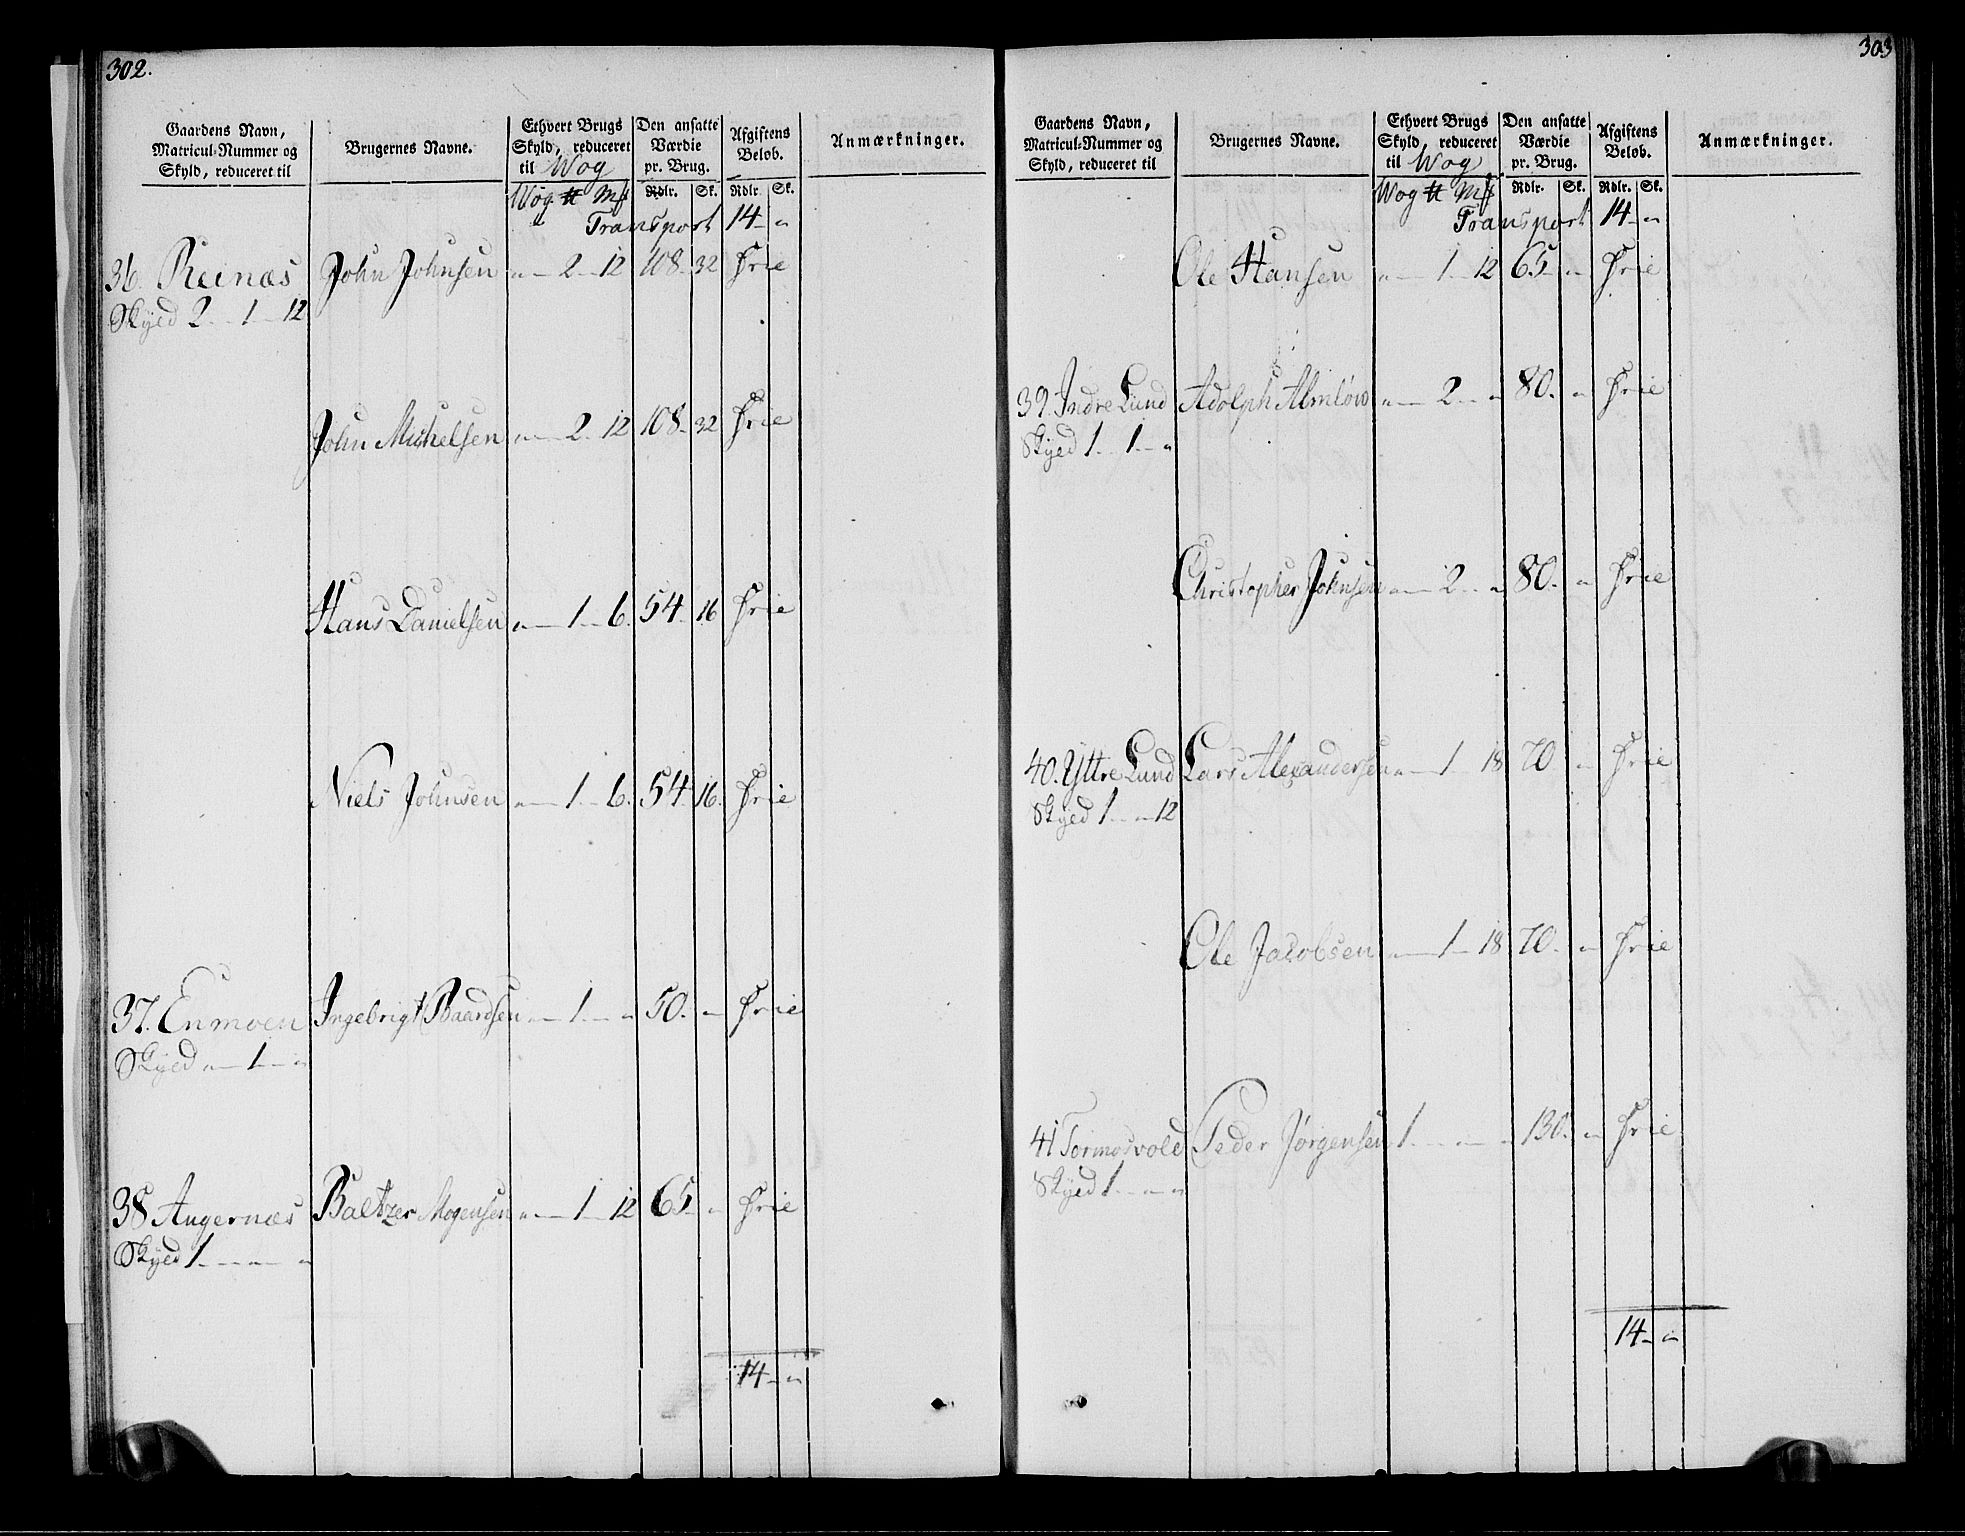 302.
Gaardens Navn, Matricul-Nummer og Skyld, reduceret til | Brugernes Navne. | Ethvert Brugs Skyld, reduceret til Wog | Den ansatte Værdie pr. Brug. | Afgiftens Beløb. | Anmærkninger.
Wog ℔ Mk | Rdlr. | Sk. | Rdlr. | Sk.
Transport 14 "
36. Reinæs John Johnsen " 2 12 108 32 Frie
Skyld 2 1 12
John Michelsen " 2 12 108 32 Frie
Hans Danielsen " 1 6. 54 16 Frie
Niels Johnsen " 1 6. 54 16. Frie
37. Enmoen Ingebrigt Baardsen " 1 " 50. " Frie
Skyld " 1 "
38 Angernæs Baltzer Mogensen " 1 12 65 " Frie
Skyld 1 " "
14 "
303
Gaardens Navn, Matricul-Nummer og Skyld, reduceret til | Brugernes Navne. | Ethvert Brugs Skyld, reduceret til Wog | Den ansatte Værdie pr. Brug. | Afgiftens Beløb. | Anmærkninger.
Wog ℔ Mk | Rdlr. | Sk. | Rdlr. | Sk.
Transport 14 "
Ole Hansen " 1 12 65 " Frie
39. Indre Lund Adolph Almløw " 2 " 80. " Frie
Skyld 1 1 "
Christopher Johnsen " 2 " 80. " Frie
40. Yttre Lund Lars Alexandersen " 1 18 70 " Frie
Skyld 1 " 12
Ole Jacobsen " 1 18 70. " Frie
41 Tormodsvold Peder Jørgensen 1 " " 130. " Frie
Skyld 1 " "
14 "